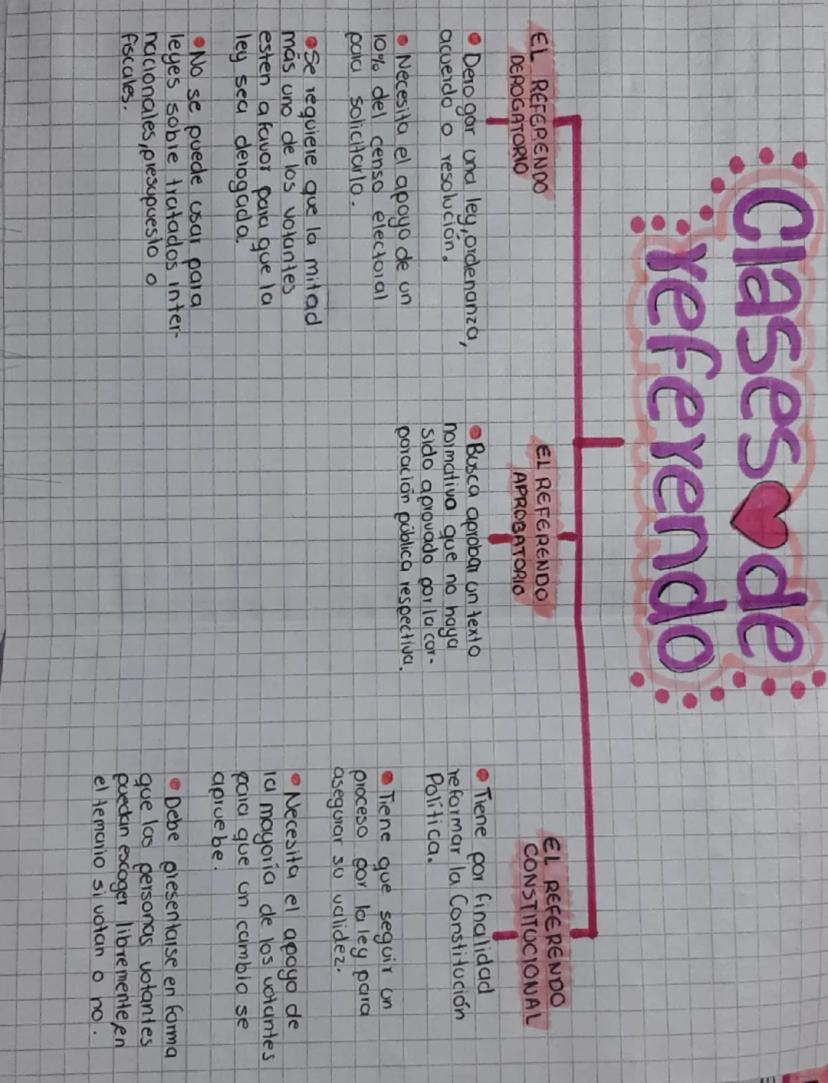 Clases de
referendo
EL REFERENDO
DEROGATORIO
Derogar una ley, ordenanza,
acuerdo o resolución.
Necesita el apoyo de un
10% del censo electoral
para solicitarlo.
Se requiere que la mitad
más uno de los votantes
esten a favor para que la
ley sea derogada.
No se puede usar para
leyes sobre tratados inter-
nacionales, presupuesto o
fiscales.
EL REFERENDO
APROBATORIO
Busca aprobar un texto
normativo que no haya
sido aprovado por la cor-
poración pública respectiva.
EL REFERENDO
CONSTITUCIONAL
Tiene por finalidad
reformar la Constitución
Política.
Tiene que seguir un
proceso por la ley para
asegurar su validez.
Necesita el apoyo de
la mayoría de los votantes
para que un cambio se
apruebe.
Debe presentarse en forma
que las personas votantes
puedan escoger libremente, en
el temario si votan o no.